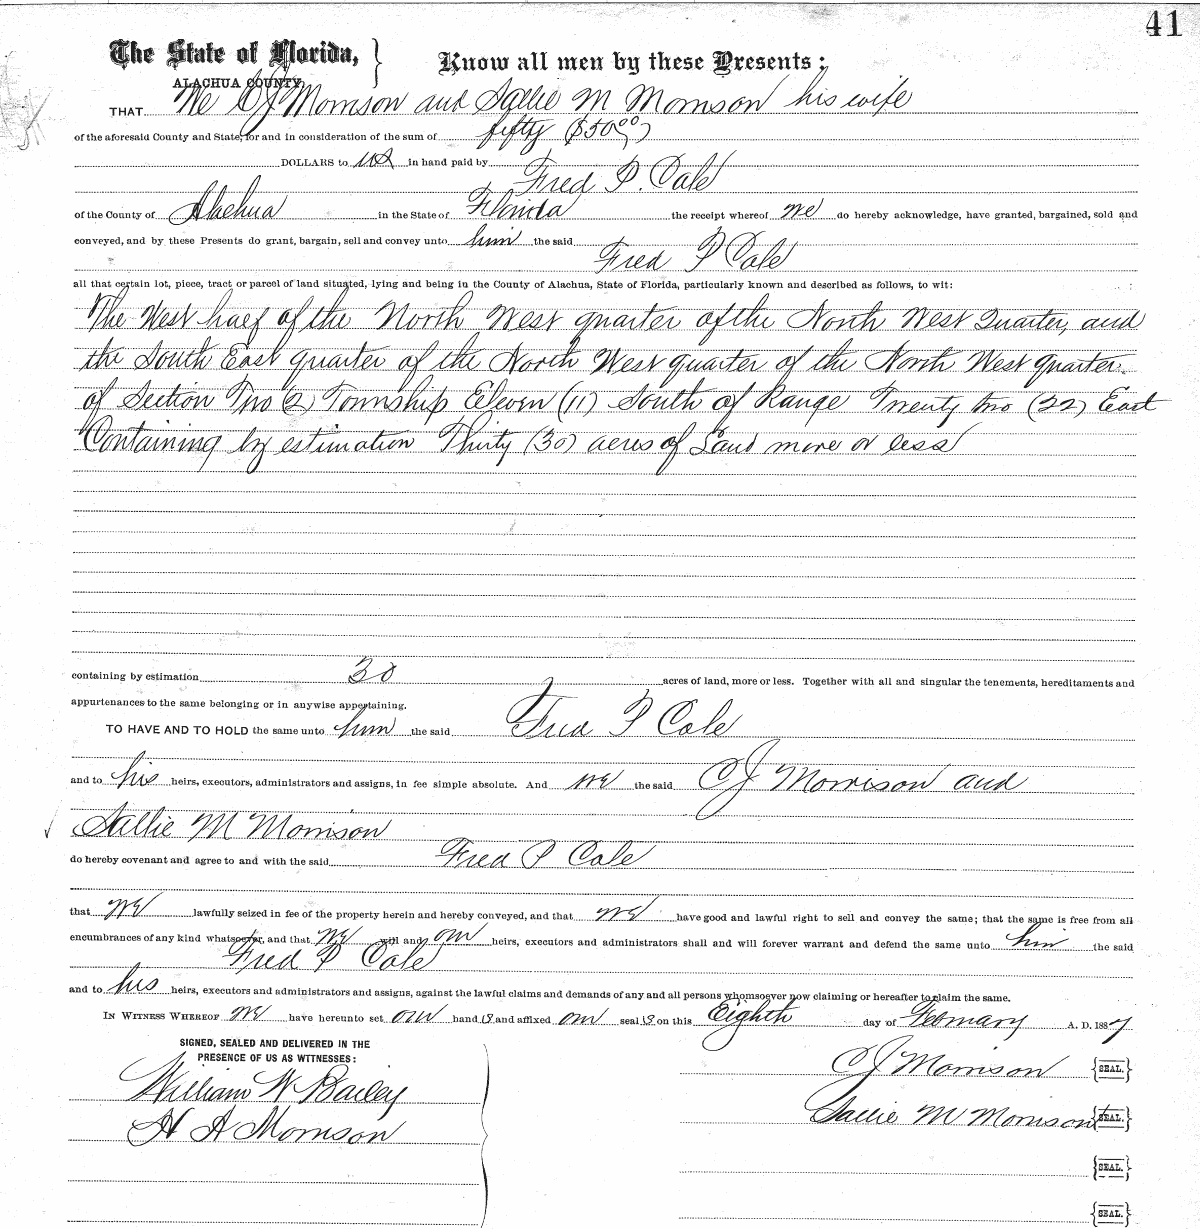 41
The State of Florida, } Know all men by these Presents:
ALACHUA COUNTY.
THAT We C J Morrison and Sallie M Morrison his wife
of the aforesaid County and State, for and in consideration of the sum of fifty ($50.00)
DOLLARS to us in hand paid by Fred P. Cole
of the County of Alachua in the State of Florida the receipt whereof we do hereby acknowledge, have granted, bargained, sold and
conveyed, and by these Presents do grant, bargain, sell and convey unto him the said Fred P Cole
all that certain lot, piece, tract or parcel of land situated, lying and being in the County of Alachua, State of Florida, particularly known and described as follows, to wit:
The West half of the North West quarter of the North West Quarter, and
the South East quarter of the North West quarter of the North West quarter.
of Section Two (2) Township Eleven (11) South of Range Twenty two (22) East
Containing by estimation Thirty (30) acres of Land more or less
containing by estimation 30 acres of land, more or less. Together with all and singular the tenements, hereditaments and
appurtenances to the same belonging or in anywise appertaining.
TO HAVE AND TO HOLD the same unto him the said Fred P Cole
and to his heirs, executors, administrators and assigns, in fee simple absolute. And we the said C J Morrison and
Sallie M Morrison
do hereby covenant and agree to and with the said Fred P Cole
that we lawfully seized in fee of the property herein and hereby conveyed, and that we have good and lawful right to sell and convey the same; that the same is free from all
encumbrances of any kind whatsoever, and that we will and our heirs, executors and administrators shall and will forever warrant and defend the same unto him the said
Fred P Cole
and to his heirs, executors and administrators and assigns, against the lawful claims and demands of any and all persons whomsoever now claiming or hereafter to claim the same.
IN WITNESS WHEREOF we have hereunto set our hand s and affixed our seal s on this Eighth day of February A. D. 1887
SIGNED, SEALED AND DELIVERED IN THE
PRESENCE OF US AS WITNESSES:
William W Bailey
H A Morrison
C J Morrison {SEAL.}
Sallie M Morrison {SEAL.}
{SEAL.}
{SEAL.}